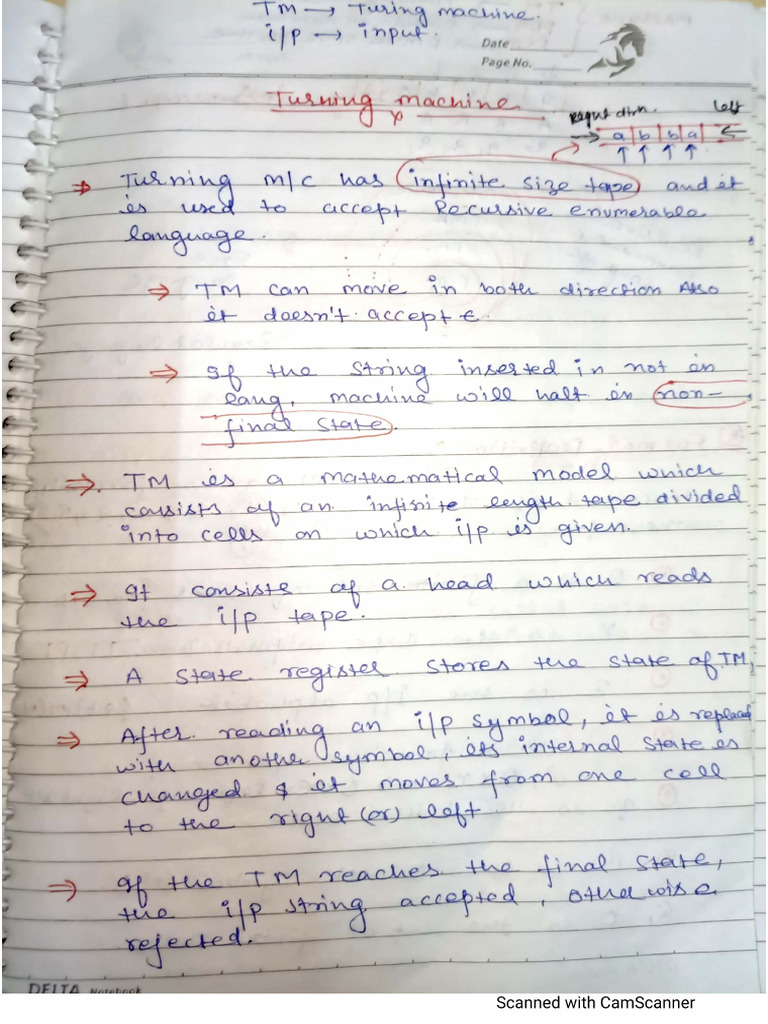 TM → Turing machine.
i/p → input.
Date
Page No.
Turning machine
Right dirn. left
a b b a
⇒ Turning m/c has infinite size tape and it
is used to accept Recursive enumerable
language.
⇒ TM can move in both direction Also
it doesn't accept ε.
⇒ If the string inserted in not in
lang, machine will halt in non-
final state.
⇒ TM is a mathematical model which
consists of an infinite length tape divided
into cells on which i/p is given.
⇒ It consists of a head which reads
the i/p tape.
⇒ A state register stores the state of TM,
⇒ After reading an i/p symbol, it is replaced
with another symbol, its internal state is
changed & it moves from one cell
to the right (or) left
⇒ If the TM reaches the final state,
the i/p string accepted, otherwise
rejected.
DELTA Notebook
Scanned with CamScanner